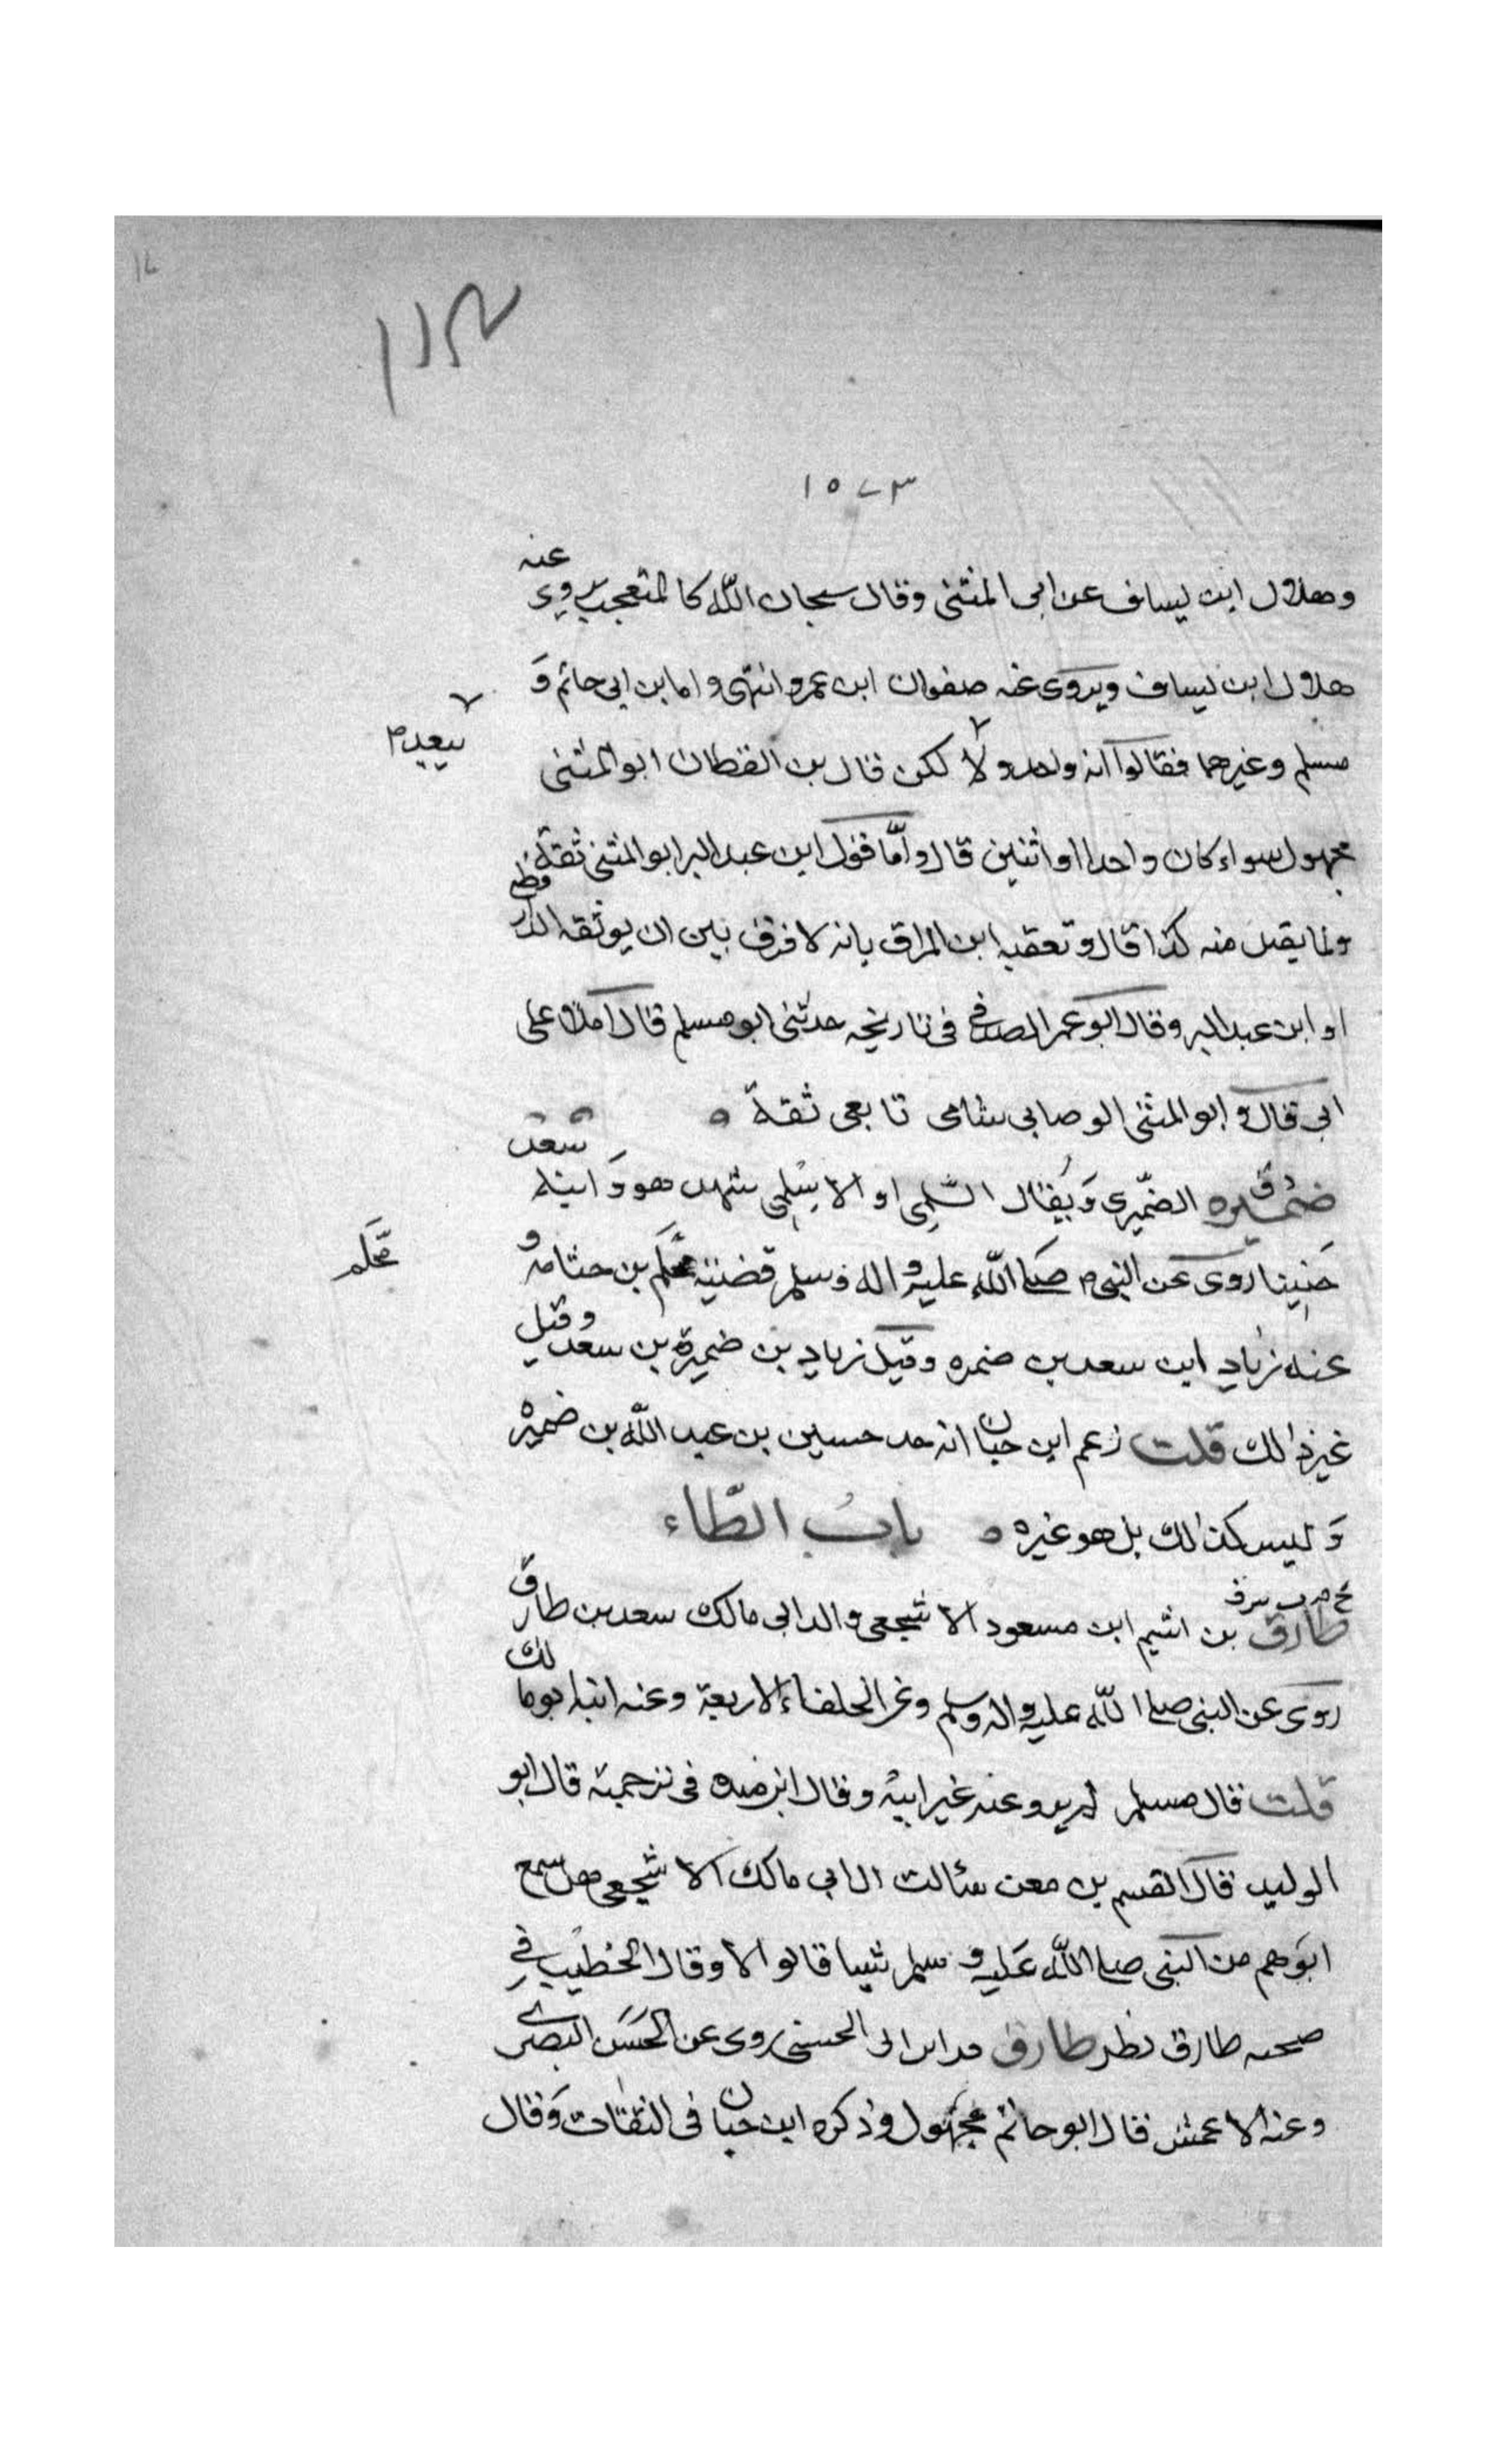 ١٥٧٣
وهلال ابن يساف عن ابى المثنى وقال سبحان الله كالمتعجب يروى عنه
هلال ابن يساف ويروى عنه صفوان ابن عمرو انتهى واما بن ابى حاتم وَ
مسلم وغيرهما فقالوا انه ولا لكن قال بن القطان ابو المثنى
مجهول سواء كان واحدا او اثنين قال وامّا قول ابن عبد البر ابو المثنى ثقة
يقبل منه كذا قال وتعقبه ابن المواق بانه لا فرق بين ان يوثقه الدارقطنى
او ابن عبد البر وقال ابو عمر الصدفى فى تاريخه حدثنى ابو مسلم قال املا على
ابى قال وابو المثنى الوصابى شامى تابعى ثقة ٥
ضميره الضّميرى وَيُقال السّلمى او الاسلمى شهد هو وَابنه سعد
حنينا روى عن النبى صلى الله عليه واله وسلم قضية محلم بن جثامه و
محلّم
عنه زياد ابن سعد بن ضمره وقيل زياد بن ضميرة بن سعد وقيل
غير ذالك قلت زعم ابن حبان انه جد حسين بن عبد الله بن ضميرة
وَليس كذالك بل هو غيره ٥ بابُ الطّاء
طارق بن اشيم ابن مسعود الاشجعى والد ابى مالك سعد بن طارق
روى عن النبى صلى الله عليه واله وسلم وعن الخلفاء الاربعة وعنه ابنه ابو مالك
قلت قال مسلم لم يرو عنه غير ابنه وقال ابن منده فى ترجمته قال ابو
الوليد قال القسم بن معن سئالت ال ابى مالك الاشجعى هل سمع
ابوهم من النبى صلى الله عَليه وسلم شيا قالوا لا وقال الخطيب فى
صحبه طارق نظر طارق روى عن الحَسَن البصرى
وعنه الاعمش قال ابو حاتم مجهول وذكره ابن حبان فى الثقات وَقال